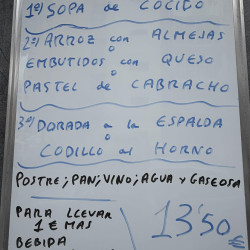 1º/ SOPA de COCIDO
2º/ ARROZ con ALMEJAS
o
EMBUTIDOS con QUESO
o
PASTEL de CABRACHO
3º/ DORADA a la ESPALDA
o
CODILLO al HORNO
POSTRE; PAN; VINO; AGUA y GASEOSA
PARA LLEVAR
1€ MAS
BEBIDA
13'50€